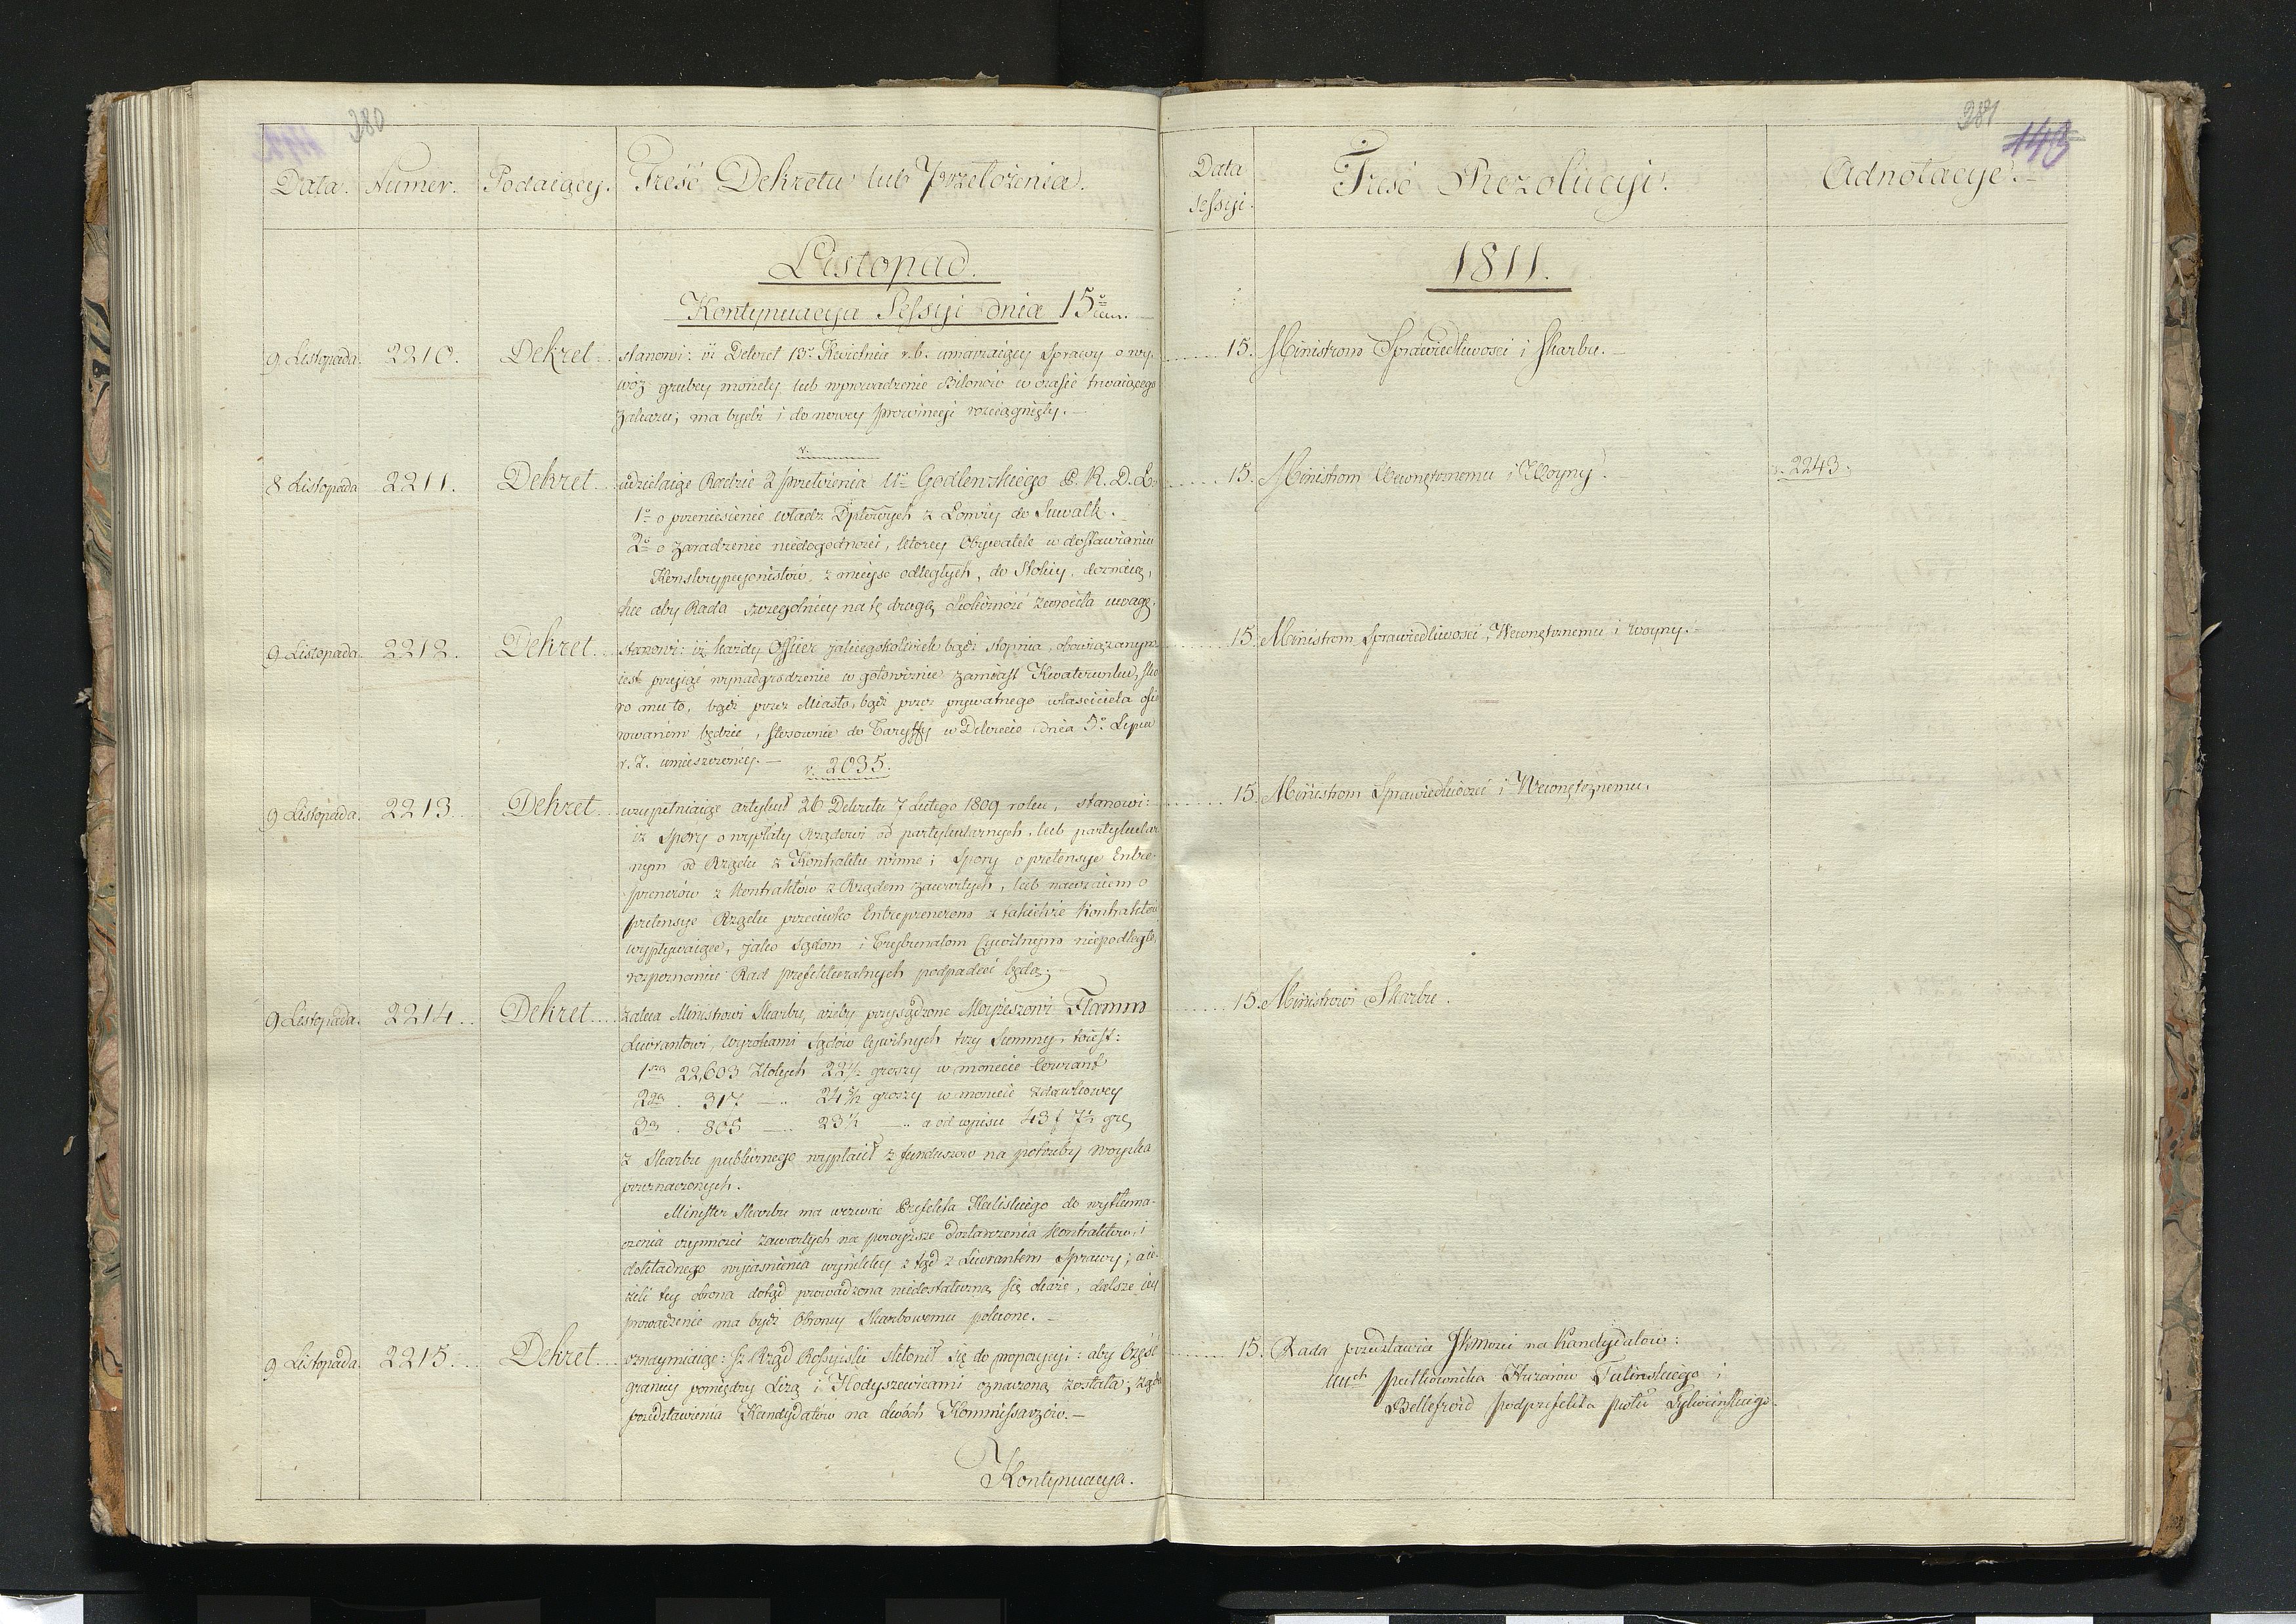 380
Data. Numer. Podaiący. Treść Dekretu lub Przełożenia.
Listopad.
Kontynuacya Sessyi dnia 15º
9 Listopada. 2210. Dekret stanowi: iż Dekret 13º Kwietnia r. b. umarzaiący Sprawy o wy-
wóz grubey monety lub wprowadzenie Bilonów w czasie trwaiącego
zakazu; ma bydź i do nowey prowincyi rozciągnięty.—
v.
8 Listopada 2211. Dekret udzielaiąc Radzie 2 przełożenia Uº Godlewskiego P. R. D. Ł.
1º o przeniesienie władz Dptowych z Łomży do Suwałk.
2º o zaradzenie niedogodności, ktorey Obywatele w dostawianiu
Konskrypcyonistów z mieysc odległych, do Stolicy, doznaią,
chce aby Rada szczegolniey na tę drugą okoliczność zwrociła uwagę.
9 Listopada. 2212. Dekret stanowi: iż każdy Officer jakiegokolwiek bądź stopnia, obowiązanym
iest przyiąć wynadgrodzenie w gotowiznie zamiast Kwaterunku, sko
ro mu to, bądź przez Miasto, bądź przez prywatnego właściciela ofia
rowanem będzie, stosownie do Taryffy w Dekrecie dnia 5º Lipca
r. z. umieszczoney.— v. 2035.
9 Listopada. 2213. Dekret uzupełniaiąc artykuł 26 Dekretu 7 Lutego 1809 roku, stanowi:
iż Spory o wypłaty Rządowi od partykularnych, lub partykular
nym od Rządu z Kontraktu winne; Spory o pretensye Entre-
prenerów z Kontraktów z Rządem zawartych, lub nawzaiem o
pretensye Rządu przeciwko Entreprenerom z takichże Kontraktów
wypływaiące, jako Sądom i Trybunałom Cywilnym niepodległe,
rozpoznaniu Rad prefekturalnych podpadać będą.
9 Listopada. 2214. Dekret zaleca Ministrowi Skarbu, ażeby przysądzone Moyżeszowi Flamm
Liwrantowi, wyrokami Sądów Cywilnych trzy Summy, toiest:
1sza 22,603 Złotych 22½ groszy w monecie Courant
2ga . 317 —.. 24½ groszy w monecie zdawkowey
3a . 805 —.. 23½ —.. a od wpisu 43 f 7½ gr
z Skarbu publicznego wypłacił z funduszow na potrzeby woyska
przeznaczonych.
Minister Skarbu ma wezwać Prefekta Kaliskiego do wytłuma-
czenia czynności zawartych na powyższe dostarczenia Kontraktów, i
dokładnego wyiaśnienia wynikłey z tąd z Liwrantem Sprawy; a ie-
żeli tey obrona dotąd prowadzona niedostateczną się okaże, dalsze iey
prowadzenie ma bydź Obrońcy Skarbowemu polecone.—
9 Listopada. 2215. Dekret oznaymiaiąc: iż Rząd Rossyiski skłonił się do propozycyi: aby Część
granicy pomiędzy Lizą i Hodyszewicami oznaczoną została; żąda
przedstawienia Kandydatów na dwóch Kommissarzów.—
Kontynuacya.
381
143
Data sessyi. Treść Rezolucyi. Adnotacye.
1811.
15. Ministrom Sprawiedliwości i Skarbu.—
15. Ministrom Wewnętrznemu i Woyny. v. 2243.
15. Ministrom Sprawiedliwości, Wewnętrznemu i woyny.
15. Ministrom Sprawiedliwości i Wewnętrznemu.
15. Ministrowi Skarbu.
15. Rada przedstawia JKMości na Kandydatów:
pułkownika Huzarów Tulinskiego i
Bellefroid podprefekta pwtu Tykocińskiego.